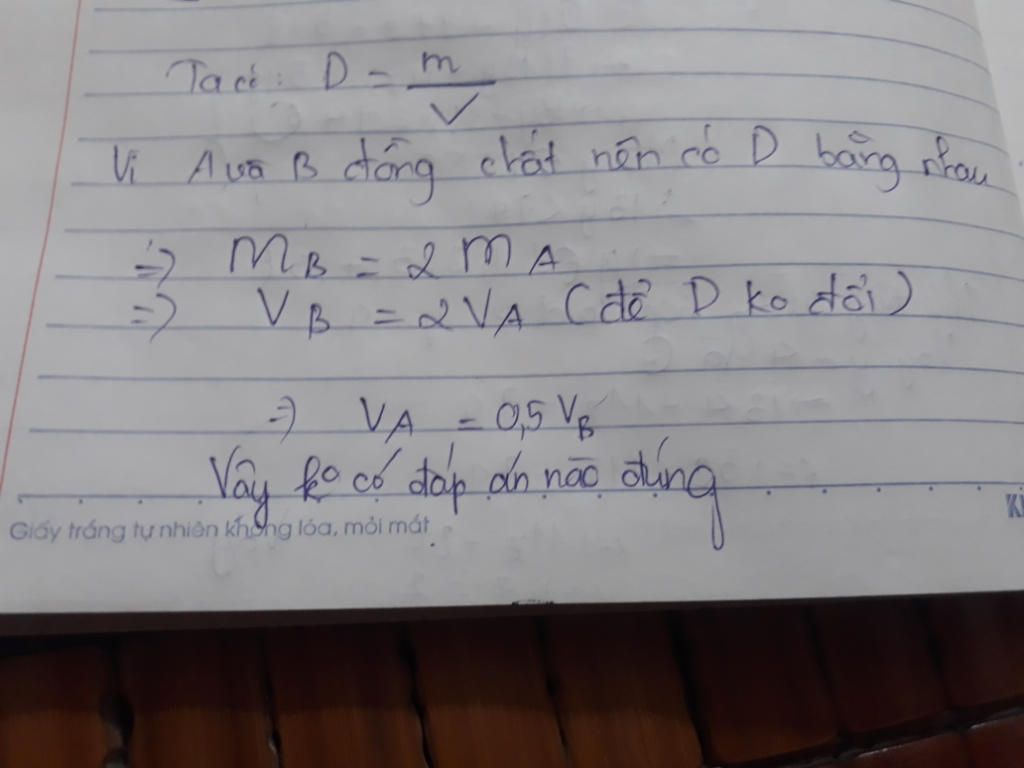 Ta có: D = m/V
Vì A và B đồng chất nên có D bằng nhau
=> mB = 2 mA
=> VB = 2VA (để D ko đổi)
=> VA = 0,5 VB
Vậy ko có đáp án nào đúng
Giấy trắng tự nhiên không lóa, mỏi mắt